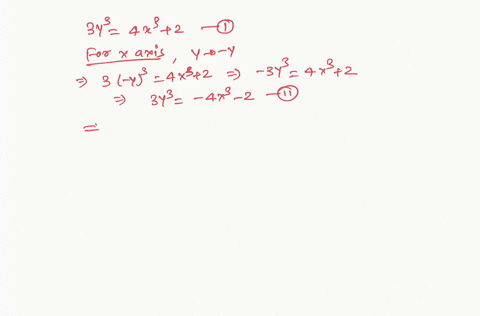 3y³ = 4x³ + 2 —(I)
For x axis, y → -y
⇒ 3(-y)³ = 4x³ + 2 ⇒ -3y³ = 4x³ + 2
⇒ 3y³ = -4x³ - 2 —(II)
=